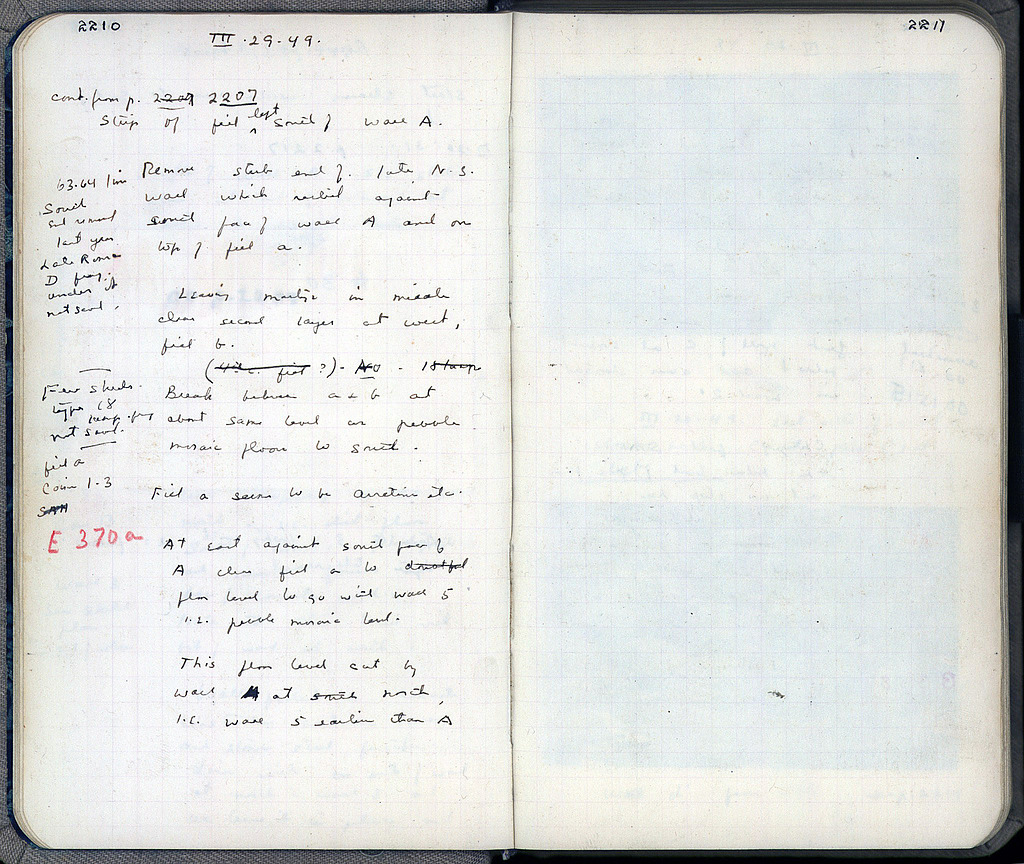 2210
III · 29 · 49 ·
cont. from p. 2209 2207
Strip of fill left South of wall A.
63.64 1 in
South
last year
Late Roman
D frag.
under it
not saved.
Remove stub end of late N.S.
wall which rested against
south face of wall A and on
top of fill a.
Leaving in middle
clear second layer at west,
fill b.
(4th c. fill ?) - No -
Few sherds
type 18
lamp frg
not saved.
Break between a & b at
about same level as pebble
mosaic floor to south.
fill a
Coin 1-3
Fill a seems to be arretine etc.
E 370a
At east against south face of
A clear fill a to doubtful
floor level to go with wall 5
i.e. pebble mosaic level.
This floor level cut by
wall A at south north,
i.e. wall 5 earlier than A
2211